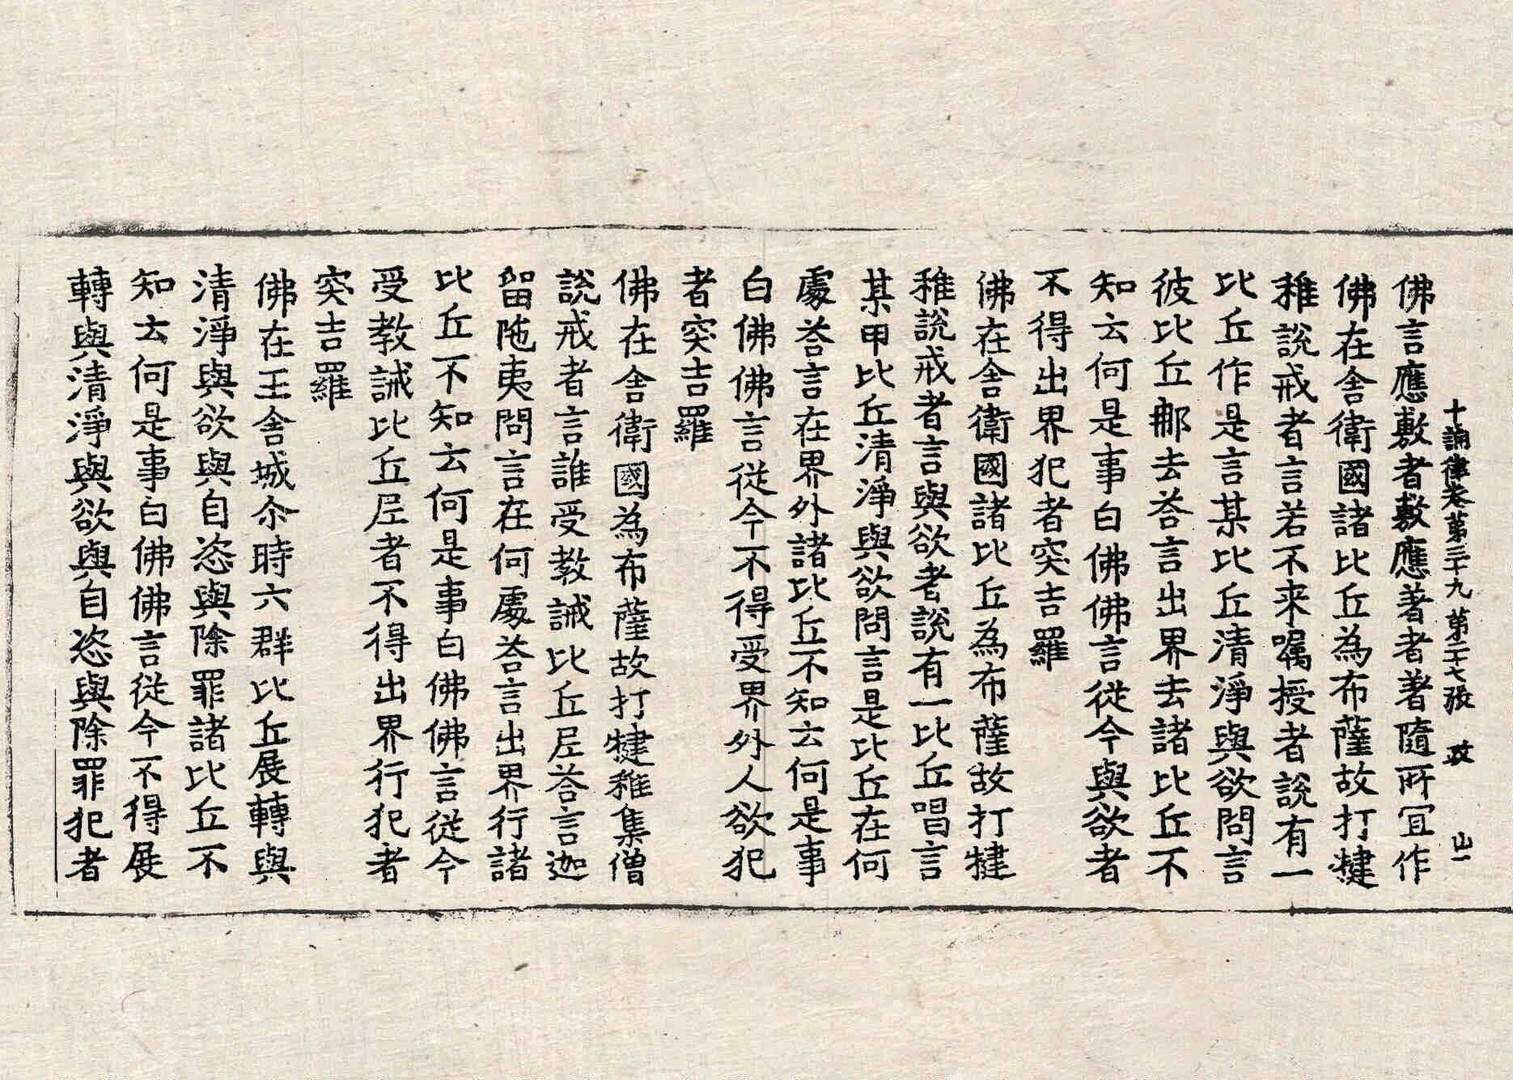 十誦律卷第三十九 第二十七張 攻 山一
佛言應敷者敷應著者著隨所宜作
佛在舍衛國諸比丘為布薩故打揵
稚說戒者言若不来囑授者說有一
比丘作是言某比丘清淨與欲問言
彼比丘那去荅言出界去諸比丘不
知云何是事白佛佛言從今與欲者
不得出界犯者突吉羅
佛在舍衛國諸比丘為布薩故打揵
稚說戒者言與欲者說有一比丘唱言
某甲比丘清淨與欲問言是比丘在何
處荅言在界外諸比丘不知云何是事
白佛佛言從今不得受界外人欲犯
者突吉羅
佛在舍衛國為布薩故打揵稚集僧
說戒者言誰受教誡比丘尼荅言迦
留陁夷問言在何處荅言出界行諸
比丘不知云何是事白佛佛言從今
受教誡比丘尼者不得出界行犯者
突吉羅
佛在王舍城尒時六群比丘展轉與
清淨與欲與自恣與除罪諸比丘不
知云何是事白佛佛言從今不得展
轉與清淨與欲與自恣與除罪犯者